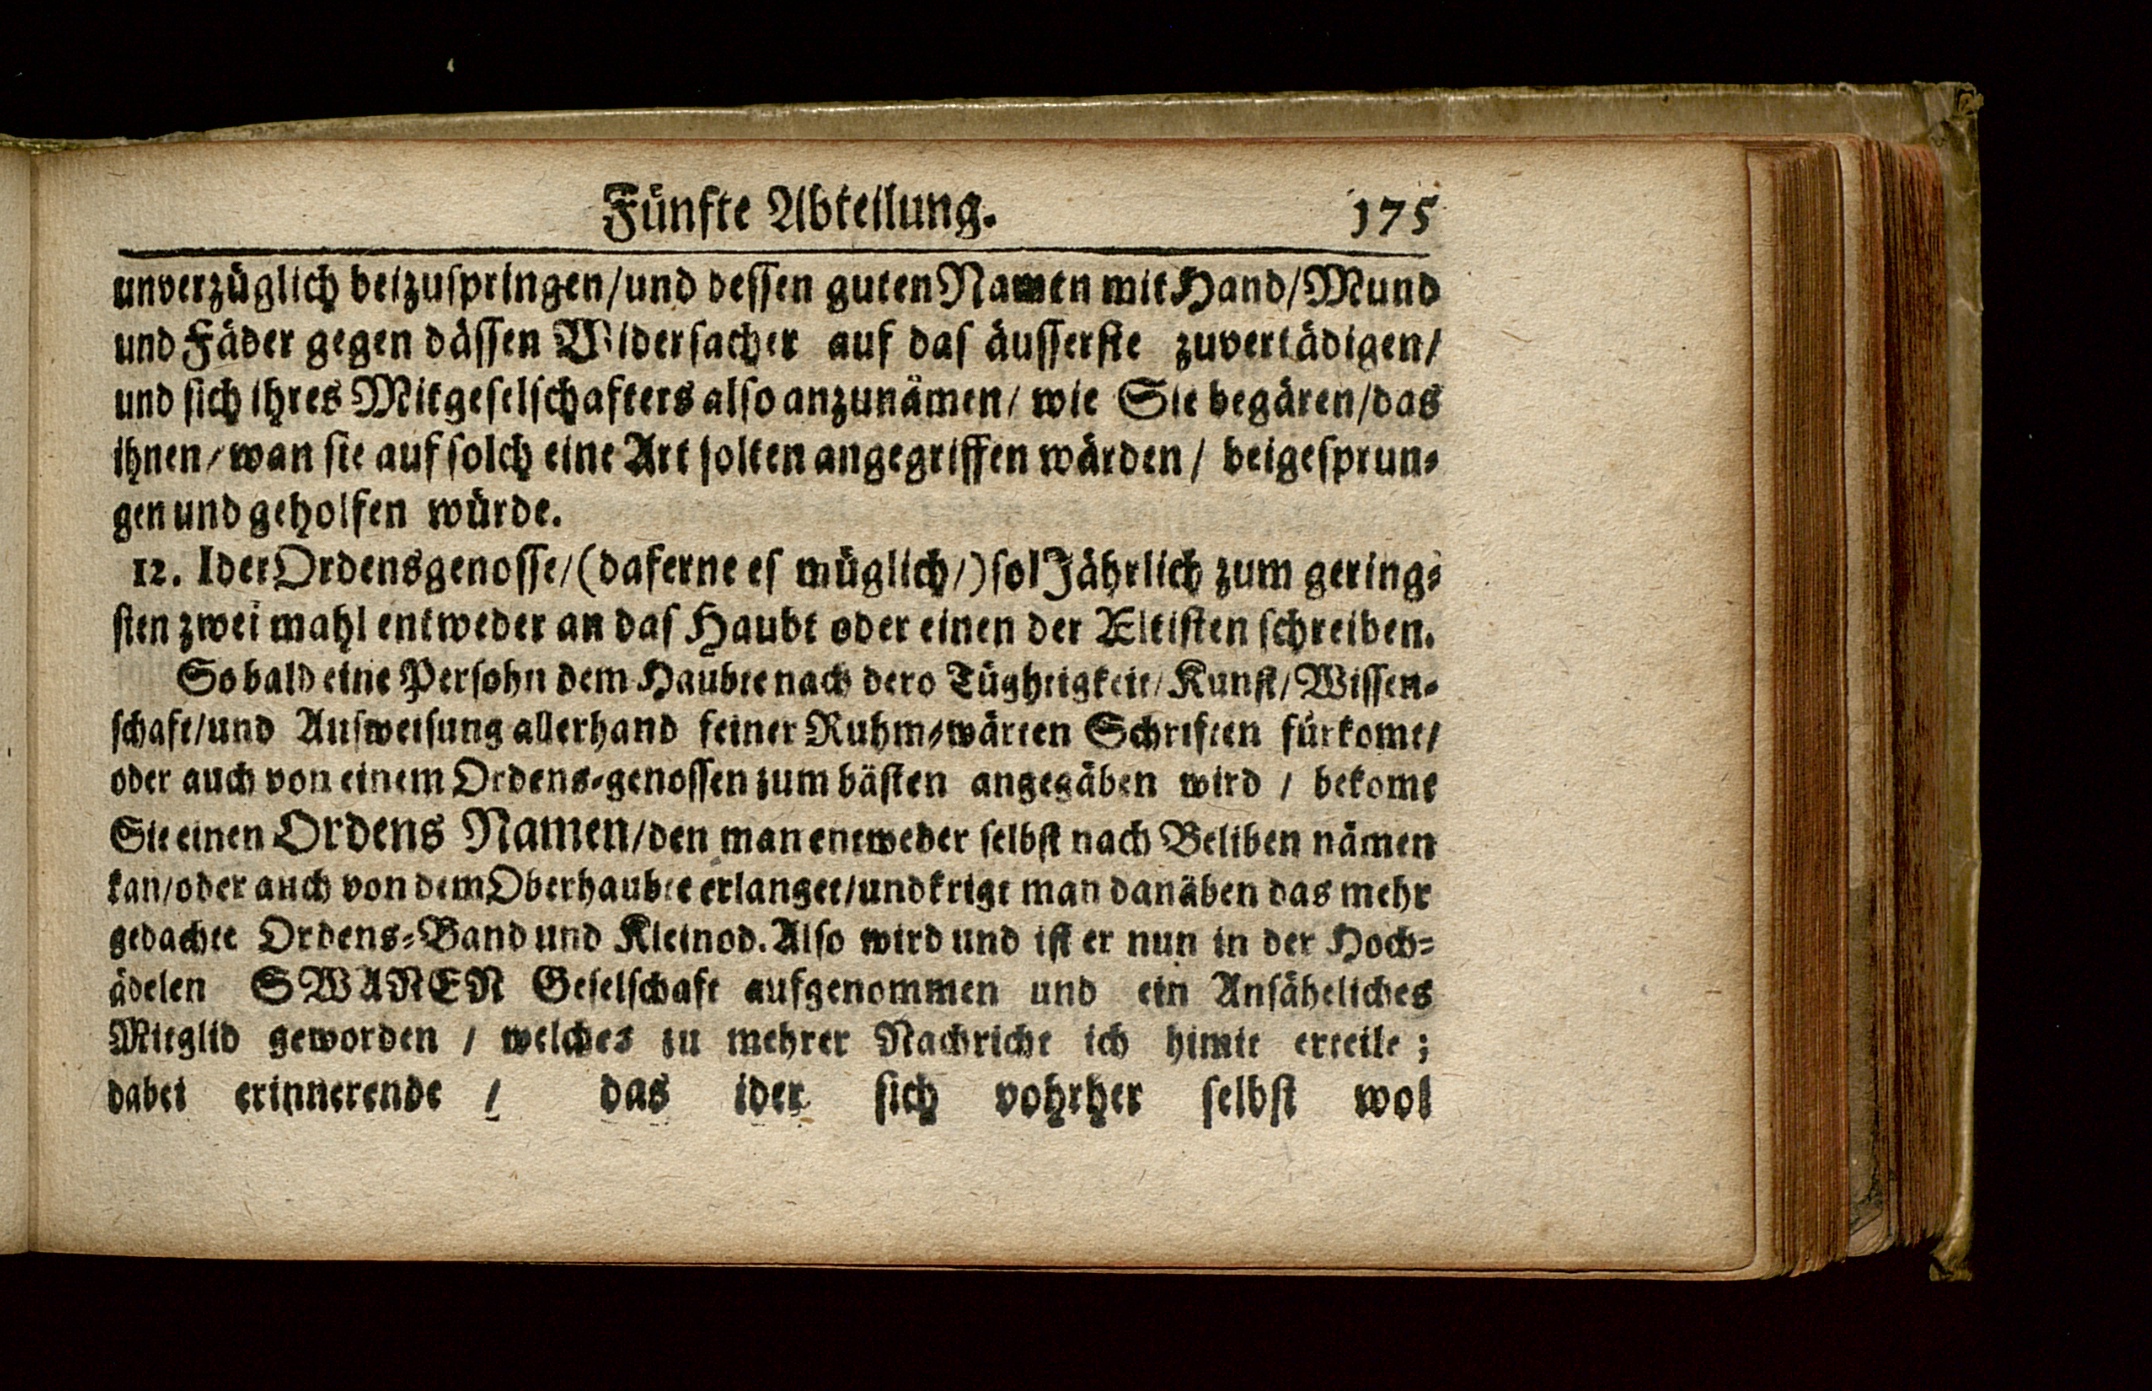 Fünfte Abteilung. 175
unverzüglich beizuspringen/und dessen guten Namen mit Hand/Mund
und Fäder gegen dässen Widersacher auf das äusserste zuvertädigen/
und sich ihres Mitgeselschafters also anzunämen/ wie Sie begären/das
ihnen/wan sie auf solch eine Art solten angegriffen wärden/ beigesprun-
gen und geholfen würde.
12. Ider Ordensgenosse/(daferne es müglich/)sol Jährlich zum gering-
sten zwei mahl entweder an das Haubt oder einen der Eltisten schreiben.
So bald eine Persohn dem Haubte nach dero Tüghtigkeit/Kunst/Wissen-
schaft/und Ausweisung allerhand feiner Ruhm-wärten Schriften fürkomt/
oder auch von einem Ordens-genossen zum bästen angegäben wird / bekomt
Sie einen Ordens Namen/den man entweder selbst nach Beliben nämen
kan/oder auch von dem Oberhaubte erlanget/und krigt man danäben das mehr
gedachte Ordens-Band und Kleinod. Also wird und ist er nun in der Hoch-
ädelen SWANEN Geselschaft aufgenommen und ein Ansäheliches
Mitglid geworden / welches zu mehrer Nachricht ich himit erteile ;
dabei erinnerende / das ider sich vohrher selbst wol